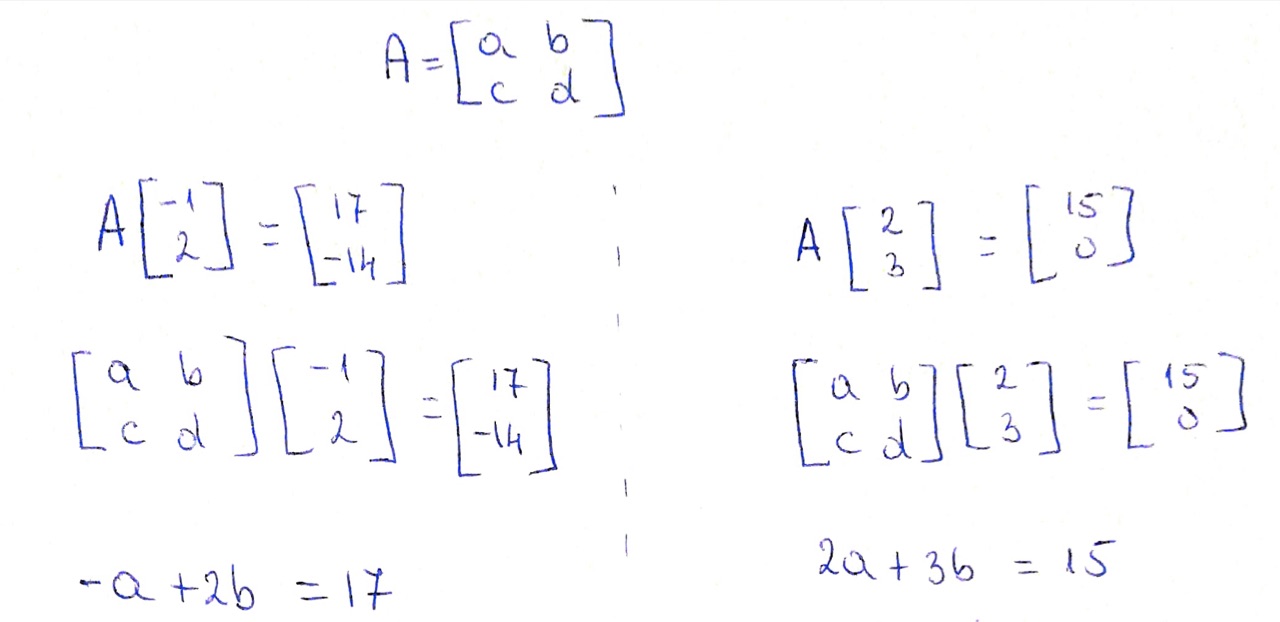 A = [a b
c d]
A [-1
2] = [17
-14]
[a b
c d] [-1
2] = [17
-14]
-a + 2b = 17
A [2
3] = [15
0]
[a b
c d] [2
3] = [15
0]
2a + 3b = 15